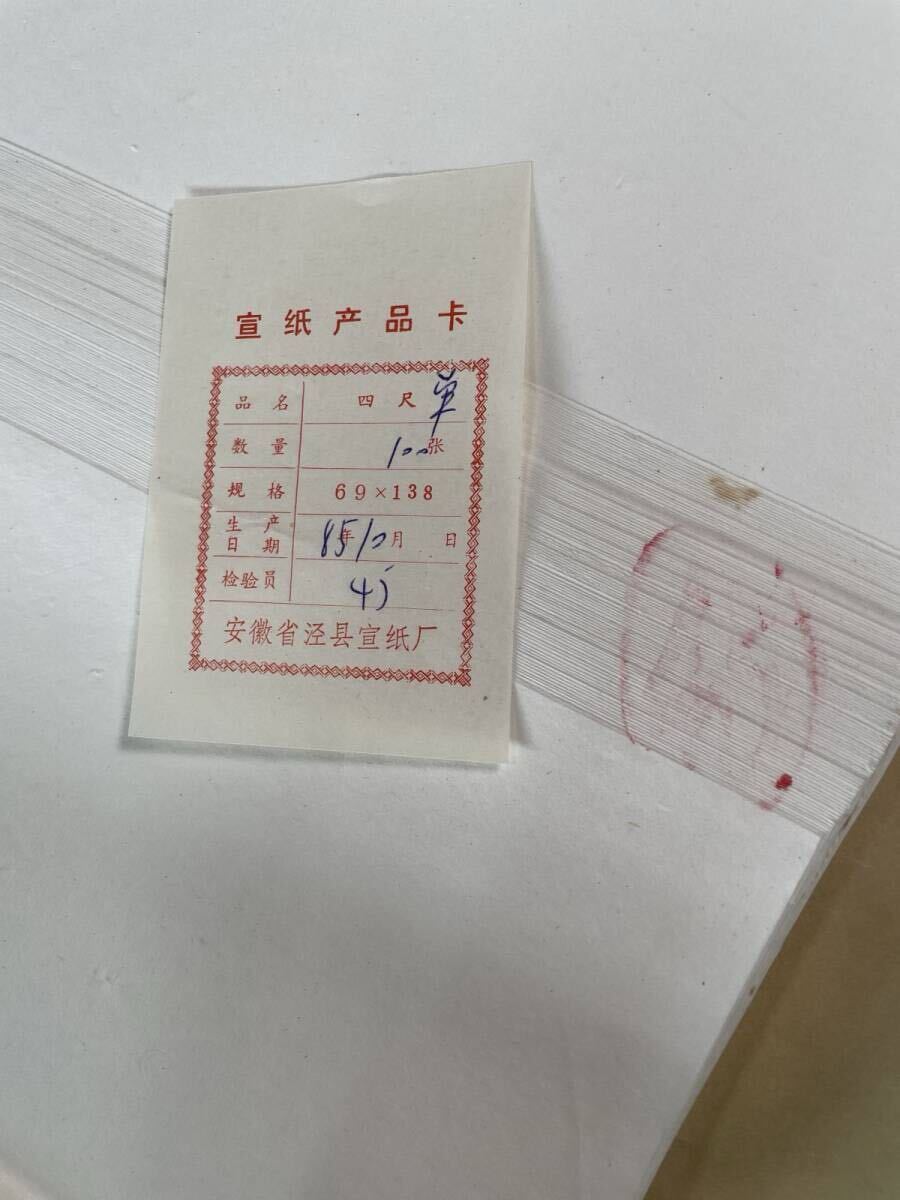 宣纸产品卡
品名 四尺单
数量 100张
规格 69×138
生产日期 85年10月 日
检验员
安徽省泾县宣纸厂